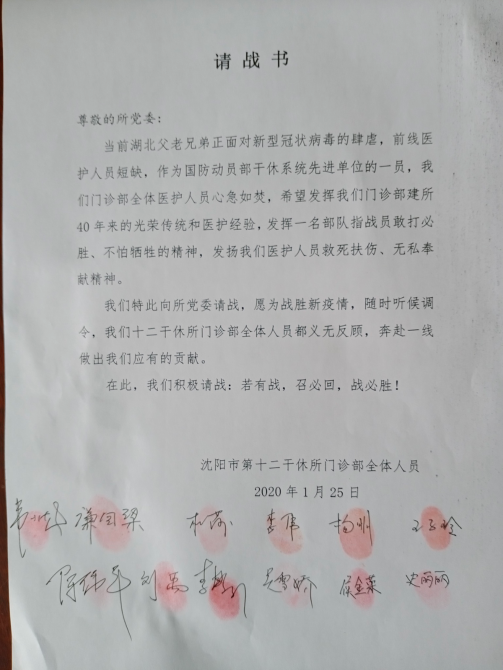 请战书
尊敬的所党委：
当前湖北父老兄弟正面对新型冠状病毒的肆虐，前线医
护人员短缺，作为国防动员部干休系统先进单位的一员，我
们门诊部全体医护人员心急如焚，希望发挥我们门诊部建所
40年来的光荣传统和医护经验，发挥一名部队指战员敢打必
胜、不怕牺牲的精神，发扬我们医护人员救死扶伤、无私奉
献精神。
我们特此向所党委请战，愿为战胜新疫情，随时听候调
令，我们十二干休所门诊部全体人员都义无反顾，奔赴一线
做出我们应有的贡献。
在此，我们积极请战：若有战，召必回，战必胜！
沈阳市第十二干休所门诊部全体人员
2020年1月25日
李伟 杨州
刘禹 吴雪娇 史丽丽